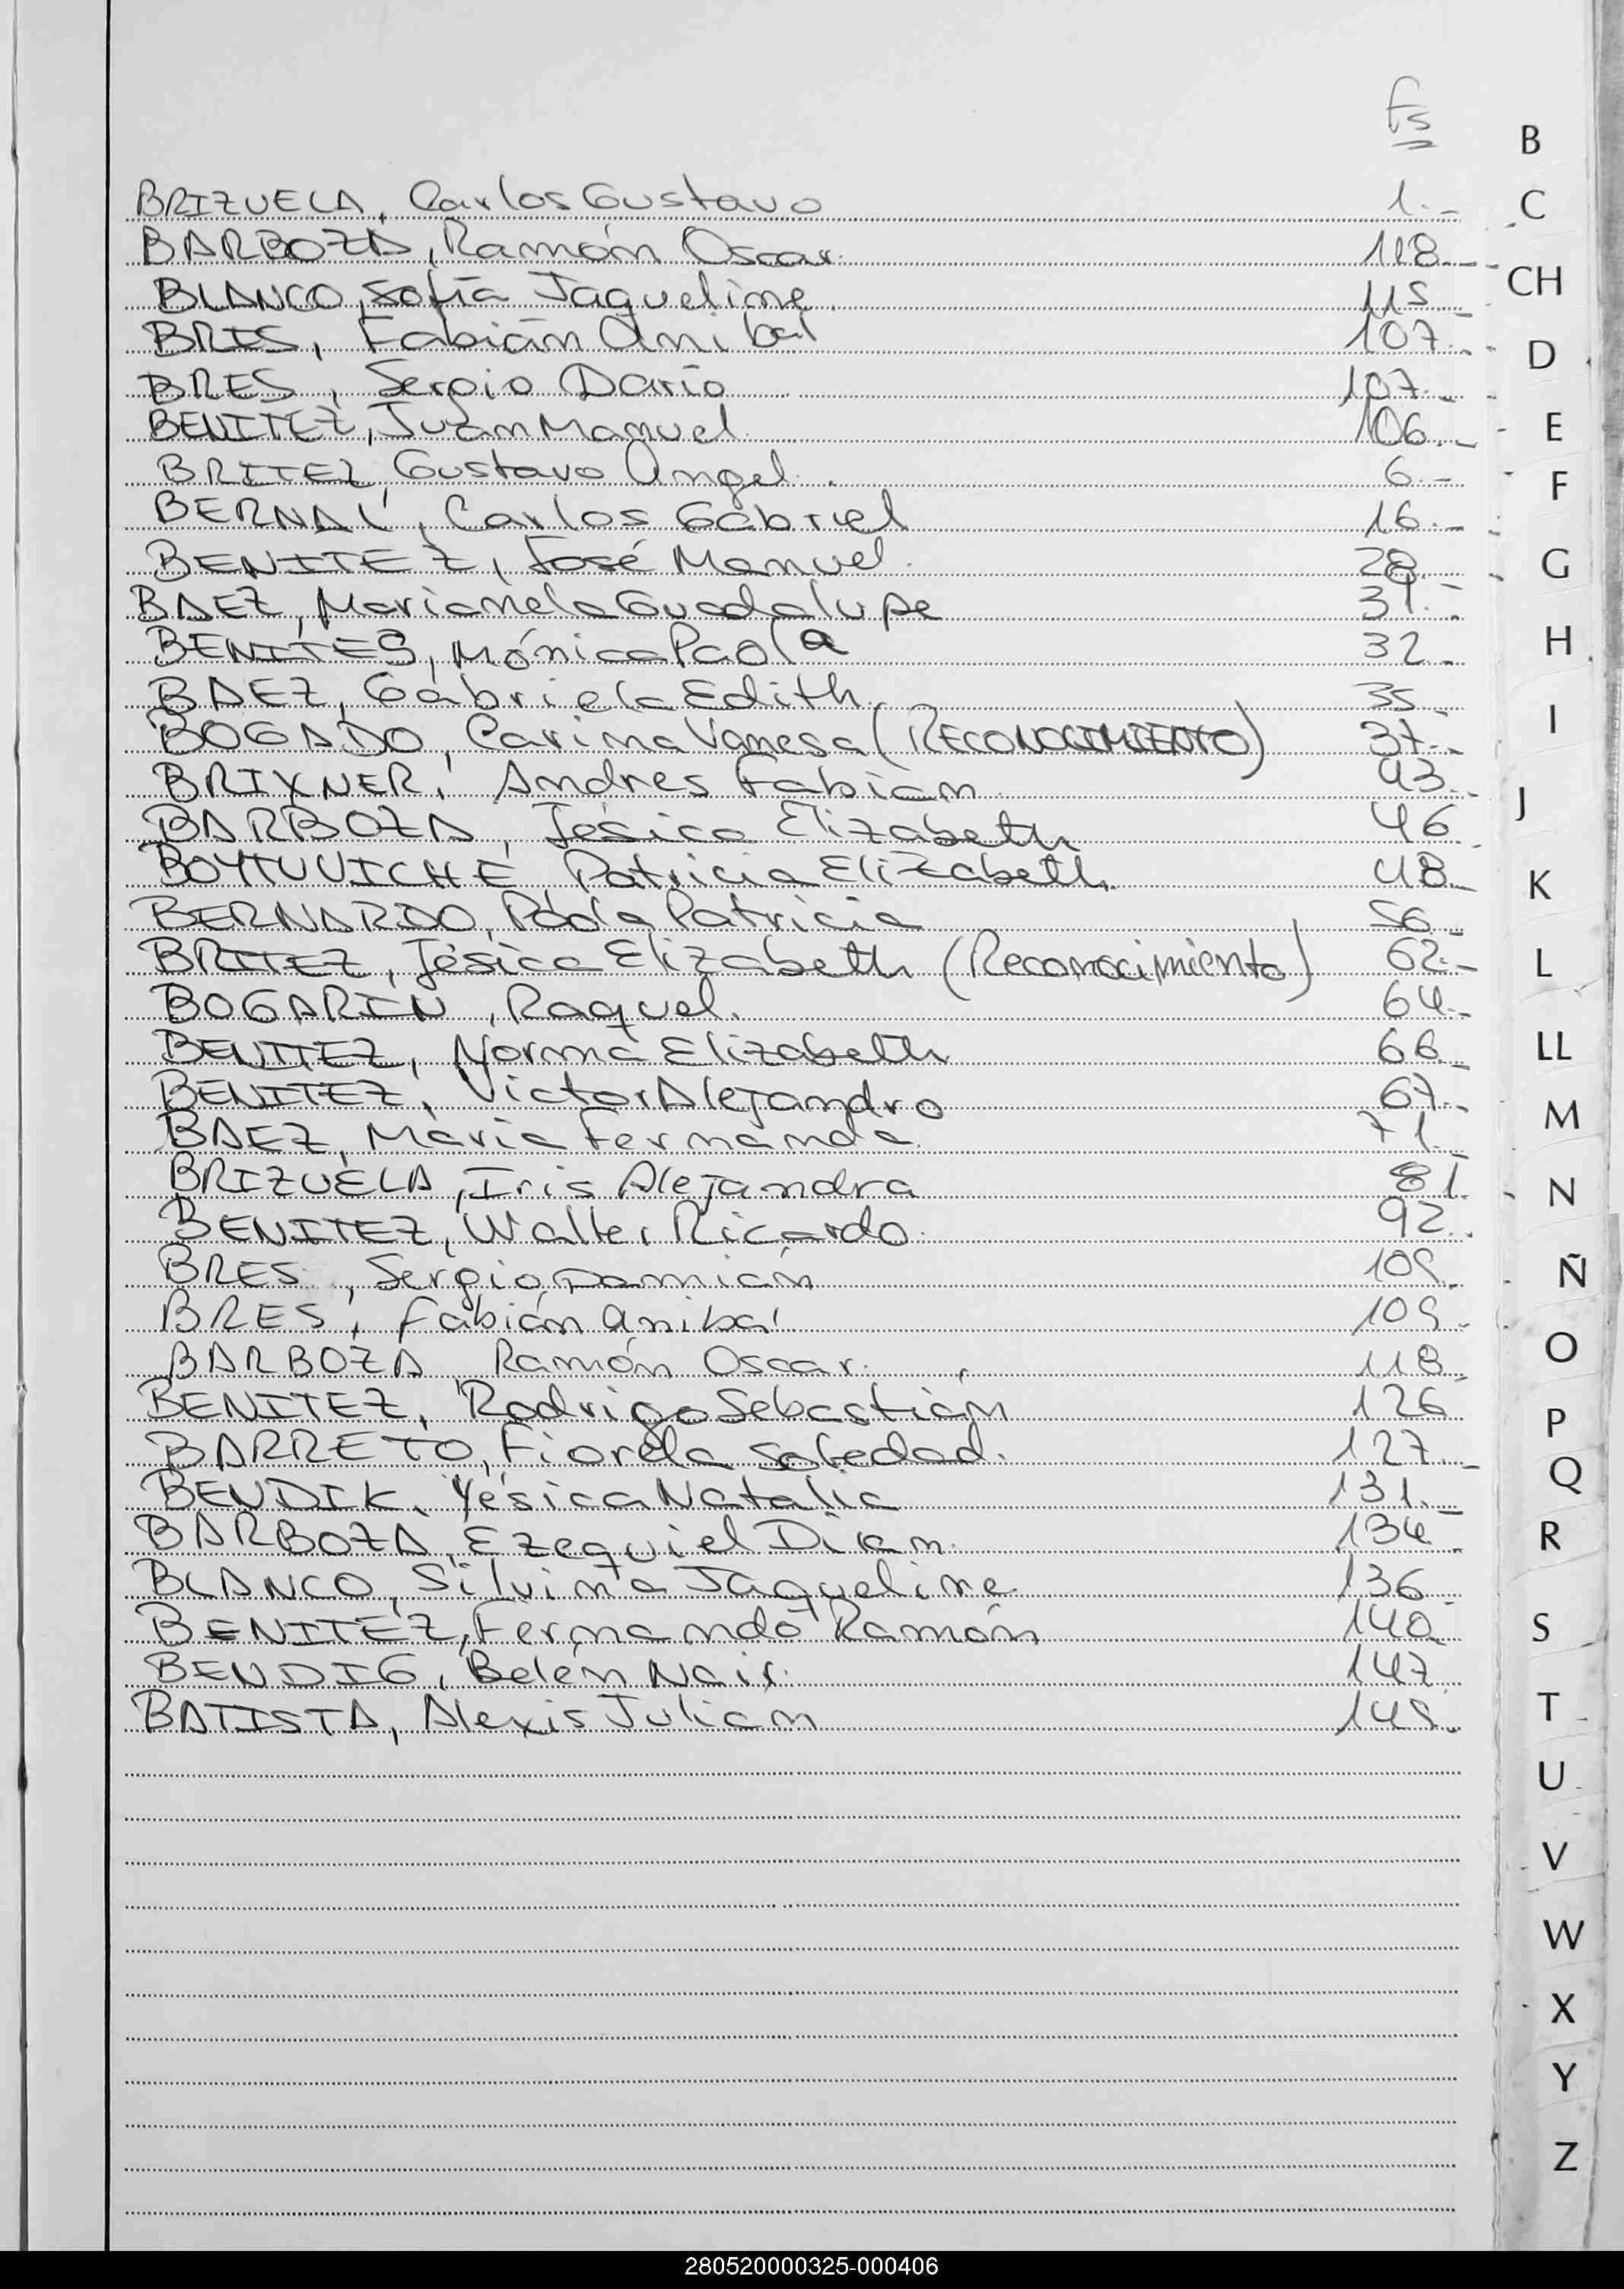 fs
BRIZUELA, Carlos Gustavo 1.-
BARBOZA, Ramón Oscar. 118.-
BLANCO, Sofía Jaqueline. 115.-
BRIS, Fabián Anibal 107.-
BRES, Sergio Darío 107.-
BENITEZ, Juan Manuel. 106.-
BRITEZ, Gustavo Angel. 6.-
BERNAL, Carlos Gabriel 16.-
BENITEZ, José Manuel. 28.-
BAEZ, Marianela Guadalupe 31.-
BENITES, Mónica Paola 32.-
BAEZ, Gabriela Edith. 35.-
BOGADO, Carina Vanesa (RECONOCIMIENTO) 37.-
BRIXNER, Andres Fabian. 43.-
BARBOZA, Jésica Elizabeth 46.-
BOYTUVICHE, Patricia Elizabeth. 48.-
BERNARDO, Paola Patricia 56.-
BRITEZ, Jésica Elizabeth (Reconocimiento) 62.-
BOGARIN, Raquel. 64.-
BENITEZ, Norma Elizabeth 66.-
BENITEZ, Victor Alejandro 67.-
BAEZ, María Fernanda. 71.-
BRIZUELA, Iris Alejandra 81.-
BENITEZ, Walter Ricardo. 92.-
BRES, Sergio Damián 109.-
BRES, Fabián Anibal 109.-
BARBOZA Ramón Oscar. 118.-
BENITEZ, Rodrigo Sebastián 126.-
BARRETO, Fiorela Soledad. 127.-
BENDIK, Yésica Natalia 131.-
BARBOZA, Ezequiel Dilan. 134.-
BLANCO, Silvina Jaqueline. 136.-
BENITEZ, Fernando Ramón 140.-
BENDIG, Belén Nair. 147.-
BATISTA, Alexis Julián 149.-
B
C
CH
D
E
F
G
H
I
J
K
L
LL
M
N
Ñ
O
P
Q
R
S
T
U
V
W
X
Y
Z
280520000325-000406